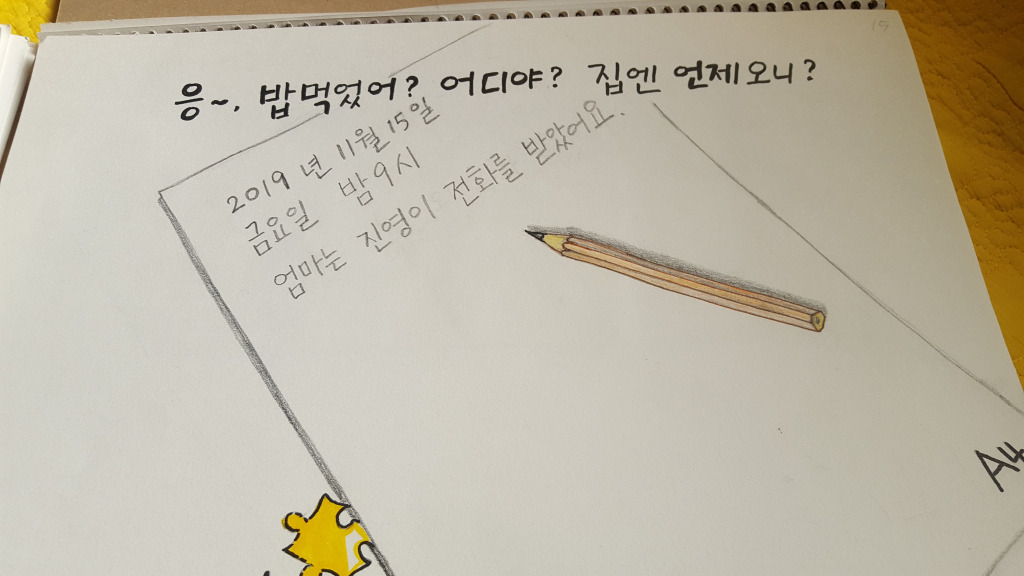 15
응~. 밥먹었어? 어디야? 집엔 언제오니?
2019 년 11월 15일
금요일 밤 9시
엄마는 진영이 전화를 받았어요.
A4